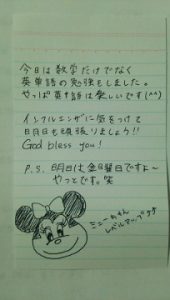 今日は数学だけでなく
英単語の勉強もしました。
やっぱ英語は楽しいです(^^)
インフルエンザに気をつけて
明日も頑張りましょう!!
God bless you!
P.S. 明日は金曜日ですよ〜
やっとです。笑
ミニーちゃん
レベルアップ